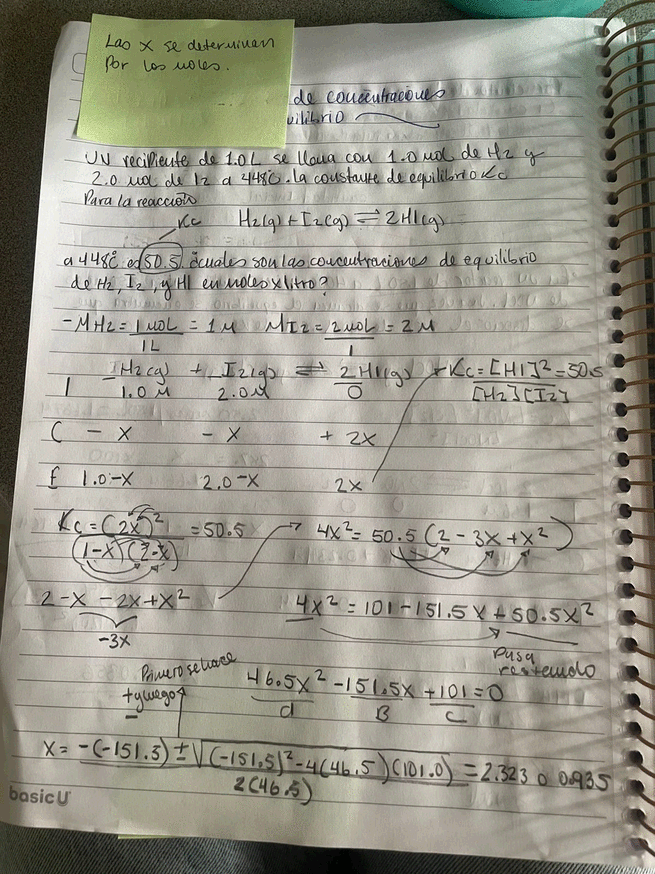 Las x se determinan
Por los moles.
de concentraciones
uilibrio
UN recipiente de 1.0L se llena con 1.0 mol de H2 y
2.0 mol de I2 a 448°c. la constante de equilibrio Kc
Para la reacción
Kc
H2(g) + I2(g) ⇌ 2HI(g)
a 448°c es 50.5 ¿cuales son las concentraciones de equilibrio
de H2, I2, y HI en moles x litro?
- MH2 = 1 mol / 1L = 1M MI2 = 2mol / 1 = 2M
I H2(g) + I2(g) ⇌ 2HI(g) Kc = [HI]² / [H2][I2] = 50.5
1.0 M 2.0M 0
C - x - x + 2x
E 1.0-x 2.0-x 2x
Kc = (2x)² / (1-x)(2-x) = 50.5
4x² = 50.5 (2 - 3x + x²)
2 - x - 2x + x²
-3x
4x² = 101 - 151.5x + 50.5x²
Pasa
restando
Primero se hace
+ y luego
-
46.5x² - 151.5x + 101 = 0
a B C
x = -(-151.5) ± √(-151.5)² - 4(46.5)(101.0) / 2(46.5) = 2.323 o 0.935
basicU